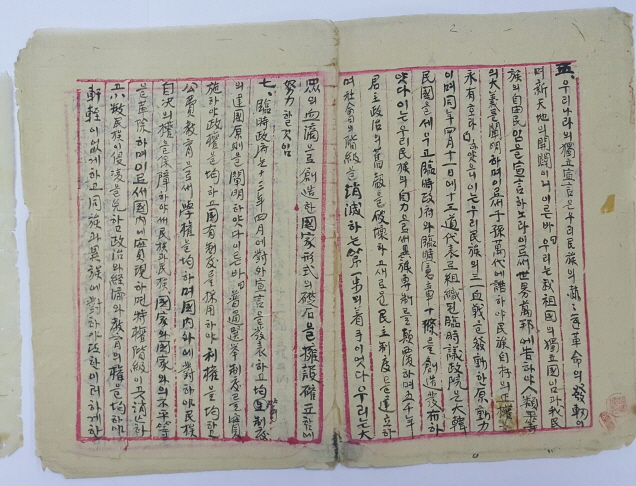 五、우리나라의 獨立宣言은 우리民族의 革命의 發動이
며 新天地의 開闢이니 이른바 우리는 我祖國의 獨立國임과 我民
族의 自由民임을 宣言하노라 이로써 世界萬邦에 告하야 人類平等
의 大義를 闡明하며 이로써 子孫萬代에 誥하야 民族自存의 正權을
永有케하라 하였으니 이는 우리民族의 三一血戰을 發動한 原動力
이며 同年四月十一日에 十三道代表로 組織된 臨時議政院은 大韓
民國을 세우고 臨時政府와 臨時憲章十條를 創造發布하
얏다 이는 우리民族의 自力으로써 異族專制를 顚覆하며 五千年
君主政治의 舊殼을 破壞하고 새로운 民主制度를 建立하
며 社會의 階級을 消滅하는 第一步의 着手이었다 우리는 大
眾의 血滴으로 創造한 國家形式의 礎石을 擁護確立함에
努力할것임
七、臨時政府는 十三年四月에 對外宣言을 發表하고 三均制度
의 建國原則을 闡明하얏다 이른바 普通選擧制度를 實
施하야 政權을 均하고 國有制度를 採用하야 利權을 均하고
公費教育으로써 學權을 均하며 國內外에 對하야 民族
自決의 權을 保障하야써 民族과 民族 國家와 國家와의 不平等
을 革除하며 이로써 國內에 實現하면 特權階級이 곧 消亡하
고 少數民族이 侵凌을 免하고 政治와 經濟와 教育의 權을 均하야
軒輊이 없게하고 同族과 異族에 對하야 또한 이러하게 한